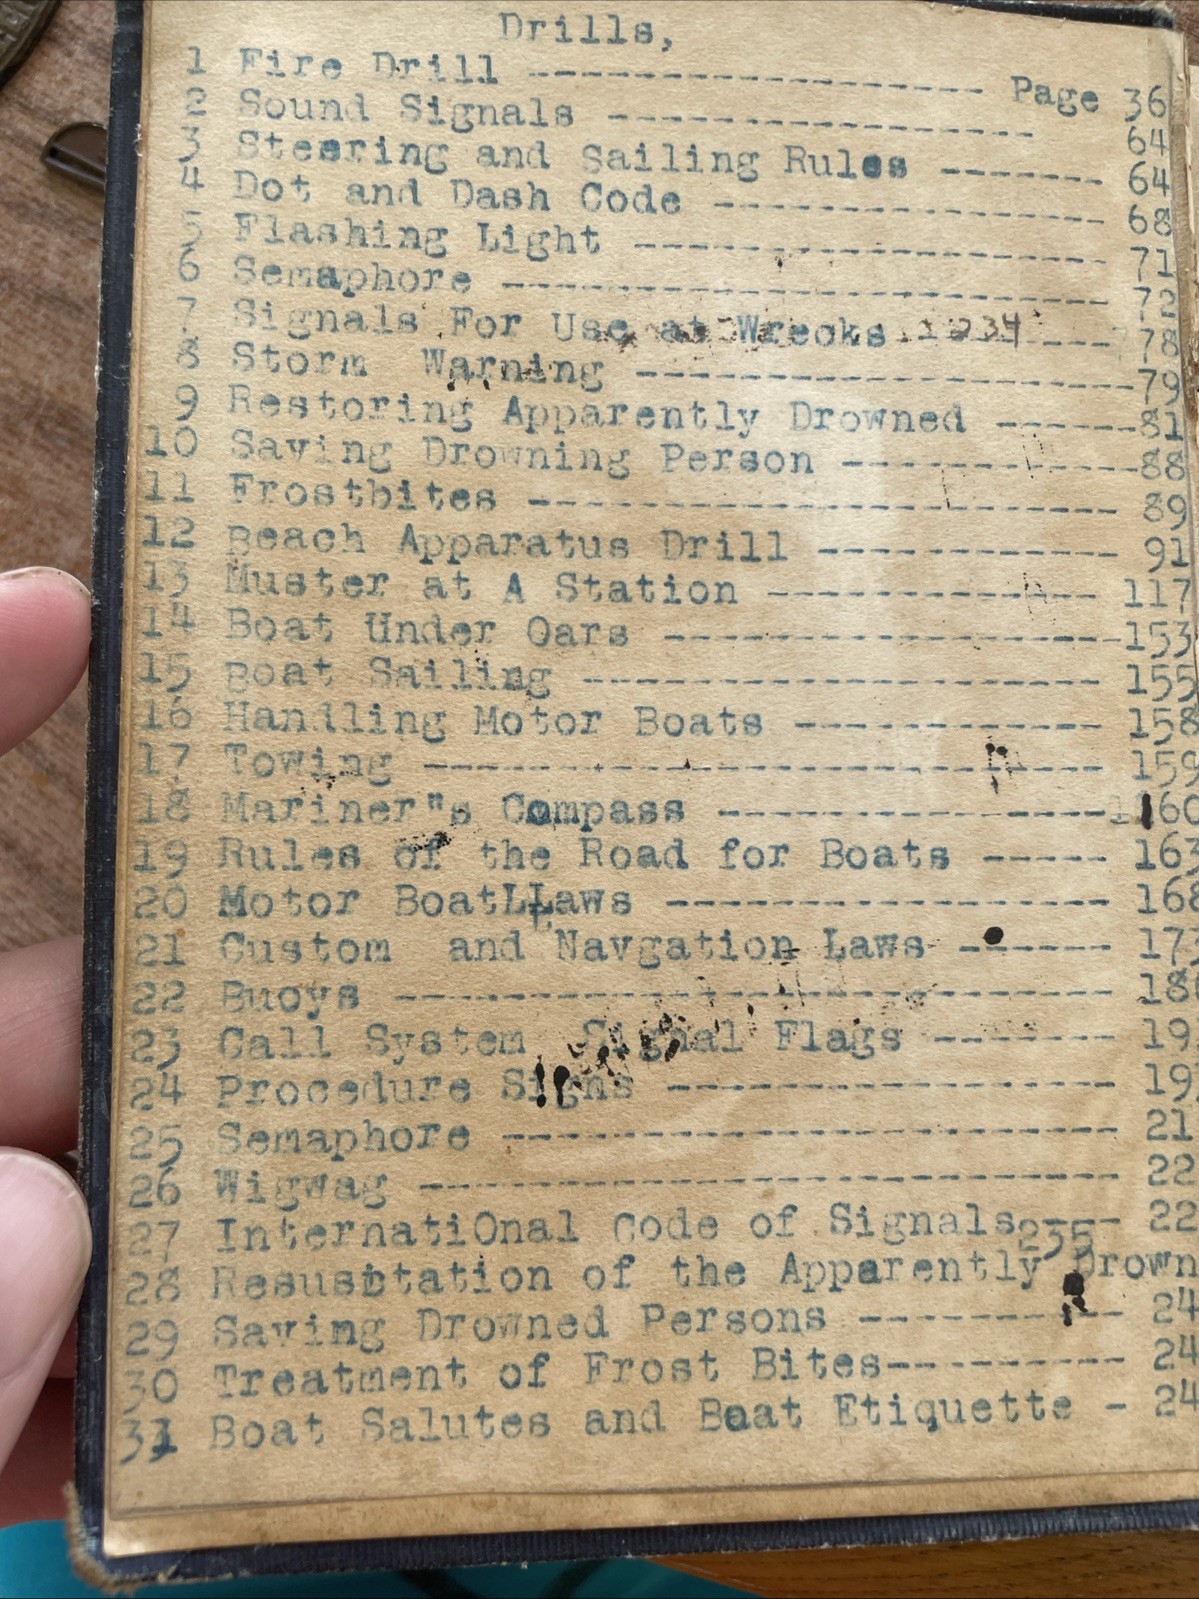 Drills,
1 Fire Drill ---------------- Page 36
2 Sound Signals --------------- 64
3 Steering and Sailing Rules ------- 64
4 Dot and Dash Code ---------------- 68
5 Flashing Light ------------------- 71
6 Semaphore ------------------------ 72
7 Signals For Use at Wrecks 234 ---- 78
8 Storm Warning --------------------79
9 Restoring Apparently Drowned ------81
10 Saving Drowning Person ------------88
11 Frostbites ---------------------- 89
12 Beach Apparatus Drill ----------- 91
13 Muster at A Station ------------- 117
14 Boat Under Oars ------------------153
15 Boat Sailing -------------------- 155
16 Handling Motor Boats ------------ 158
17 Towing -------------------------- 159
18 Mariner"s Compass ---------------- 160
19 Rules of the Road for Boats ----- 163
20 Motor BoatLLaws ----------------- 168
21 Custom and Navgation Laws ------ 17
22 Buoys --------------------------- 18
23 Call System Signal Flags ------- 19
24 Procedure Signs ----------------- 19
25 Semaphore ----------------------- 21
26 Wigwag -------------------------- 22
27 InternatiOnal Code of Signals---- 22
235
28 Resustation of the Apparently Drown
29 Saving Drowned Persons ---------- 24
30 Treatment of Frost Bites--------- 24
31 Boat Salutes and Boat Etiquette - 24